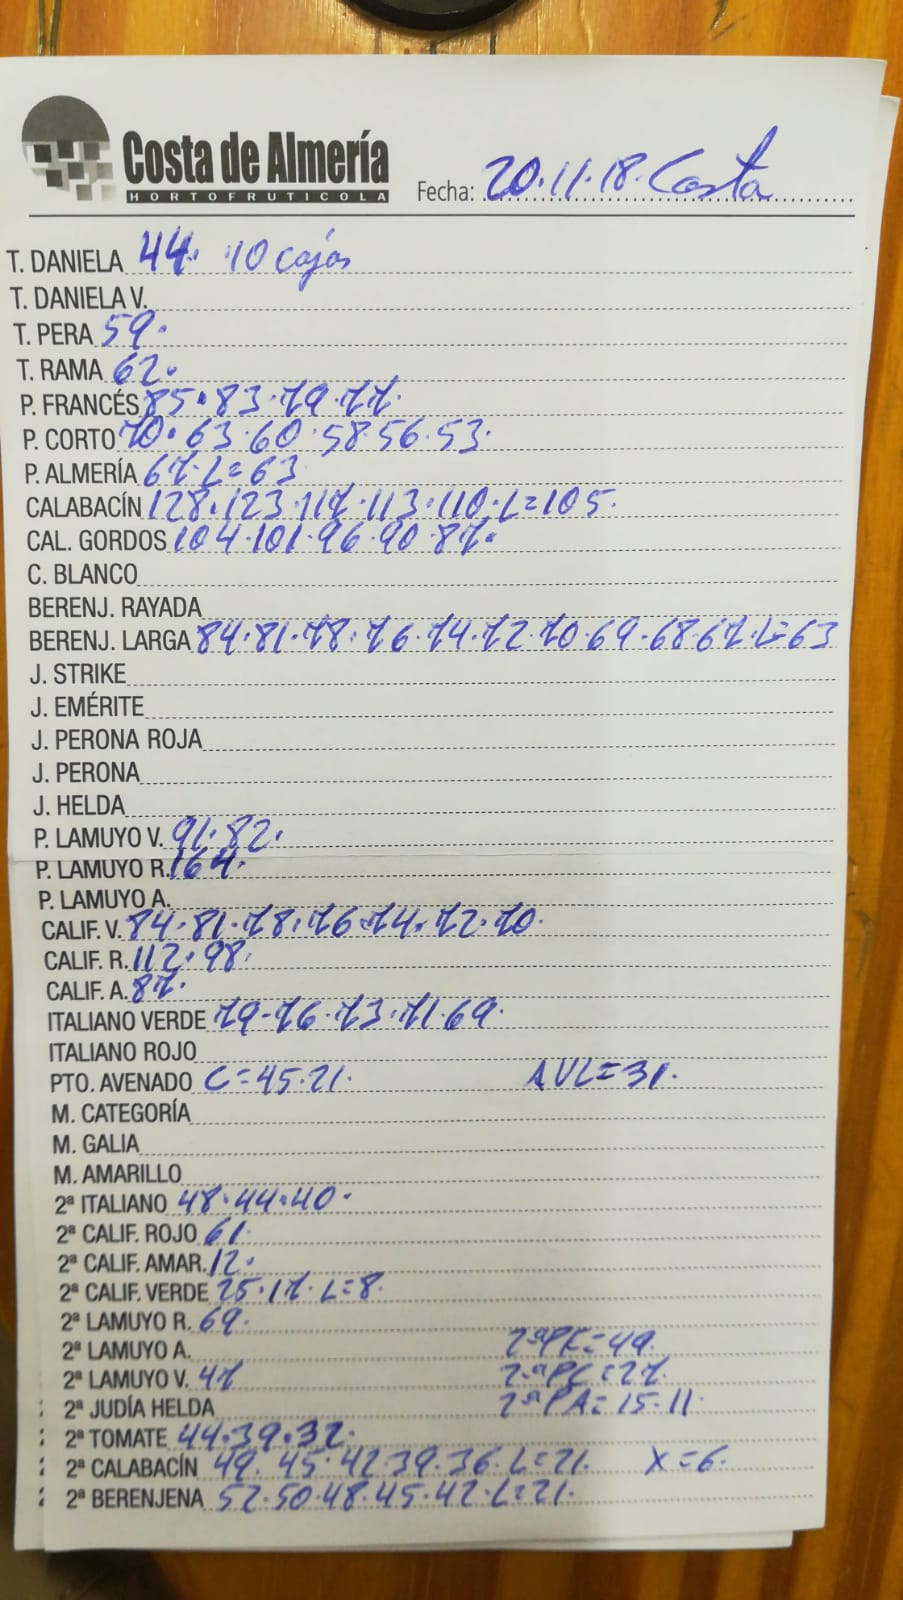 Costa de Almería
HORTOFRUTICOLA
Fecha: 20.11.18. Costa
T. DANIELA 44. 10 cajas
T. DANIELA V.
T. PERA 59.
T. RAMA 62.
P. FRANCÉS 85.83.79.77.
P. CORTO 70.63.60.58.56.53.
P. ALMERÍA 67.L=63
CALABACÍN 128.123.117.113.110.L=105.
CAL. GORDOS 104.101.96.90.87.
C. BLANCO
BERENJ. RAYADA
BERENJ. LARGA 84.81.78.76.74.72.70.69.68.67.L=63
J. STRIKE
J. EMÉRITE
J. PERONA ROJA
J. PERONA
J. HELDA
P. LAMUYO V. 91.82.
P. LAMUYO R. 164.
P. LAMUYO A.
CALIF. V. 84.81.78.76.74.72.70.
CALIF. R. 112.98.
CALIF. A. 87.
ITALIANO VERDE 79-76.73.71.69.
ITALIANO ROJO
PTO. AVENADO C=45.21. AVL=31.
M. CATEGORÍA
M. GALIA
M. AMARILLO
2ª ITALIANO 48.44.40.
2ª CALIF. ROJO 61.
2ª CALIF. AMAR. 12.
2ª CALIF. VERDE 25.17.L=8.
2ª LAMUYO R. 69.
2ª LAMUYO A. 2ªPF=49.
2ª LAMUYO V. 47 2ªPC=27.
2ª JUDÍA HELDA 2ªPA=15-11.
2ª TOMATE 44.39.32.
2ª CALABACÍN 49.45.42.39.36.L=21. X=6.
2ª BERENJENA 52.50.48.45.42.L=21.